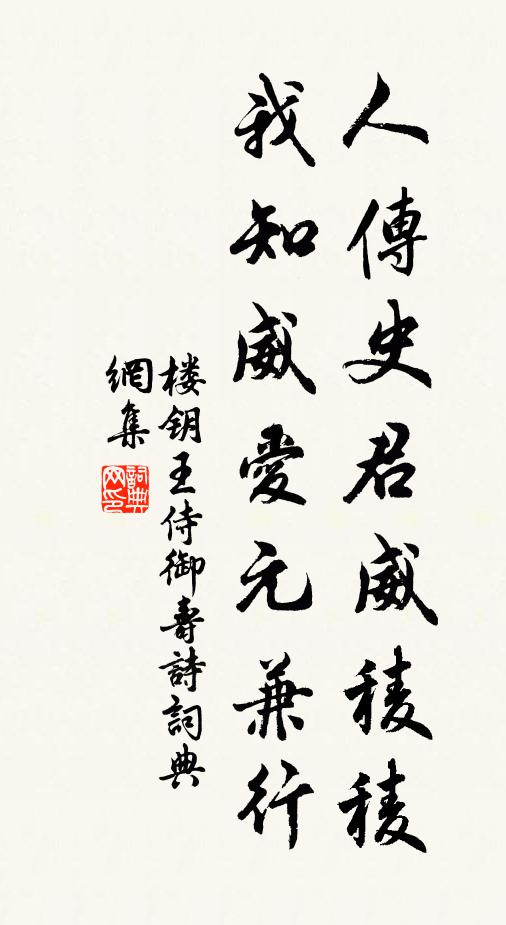 人傳史君威稜稜
我知威愛元兼行
楼钥王侍御壽詩詞典
網集
詞典
网印